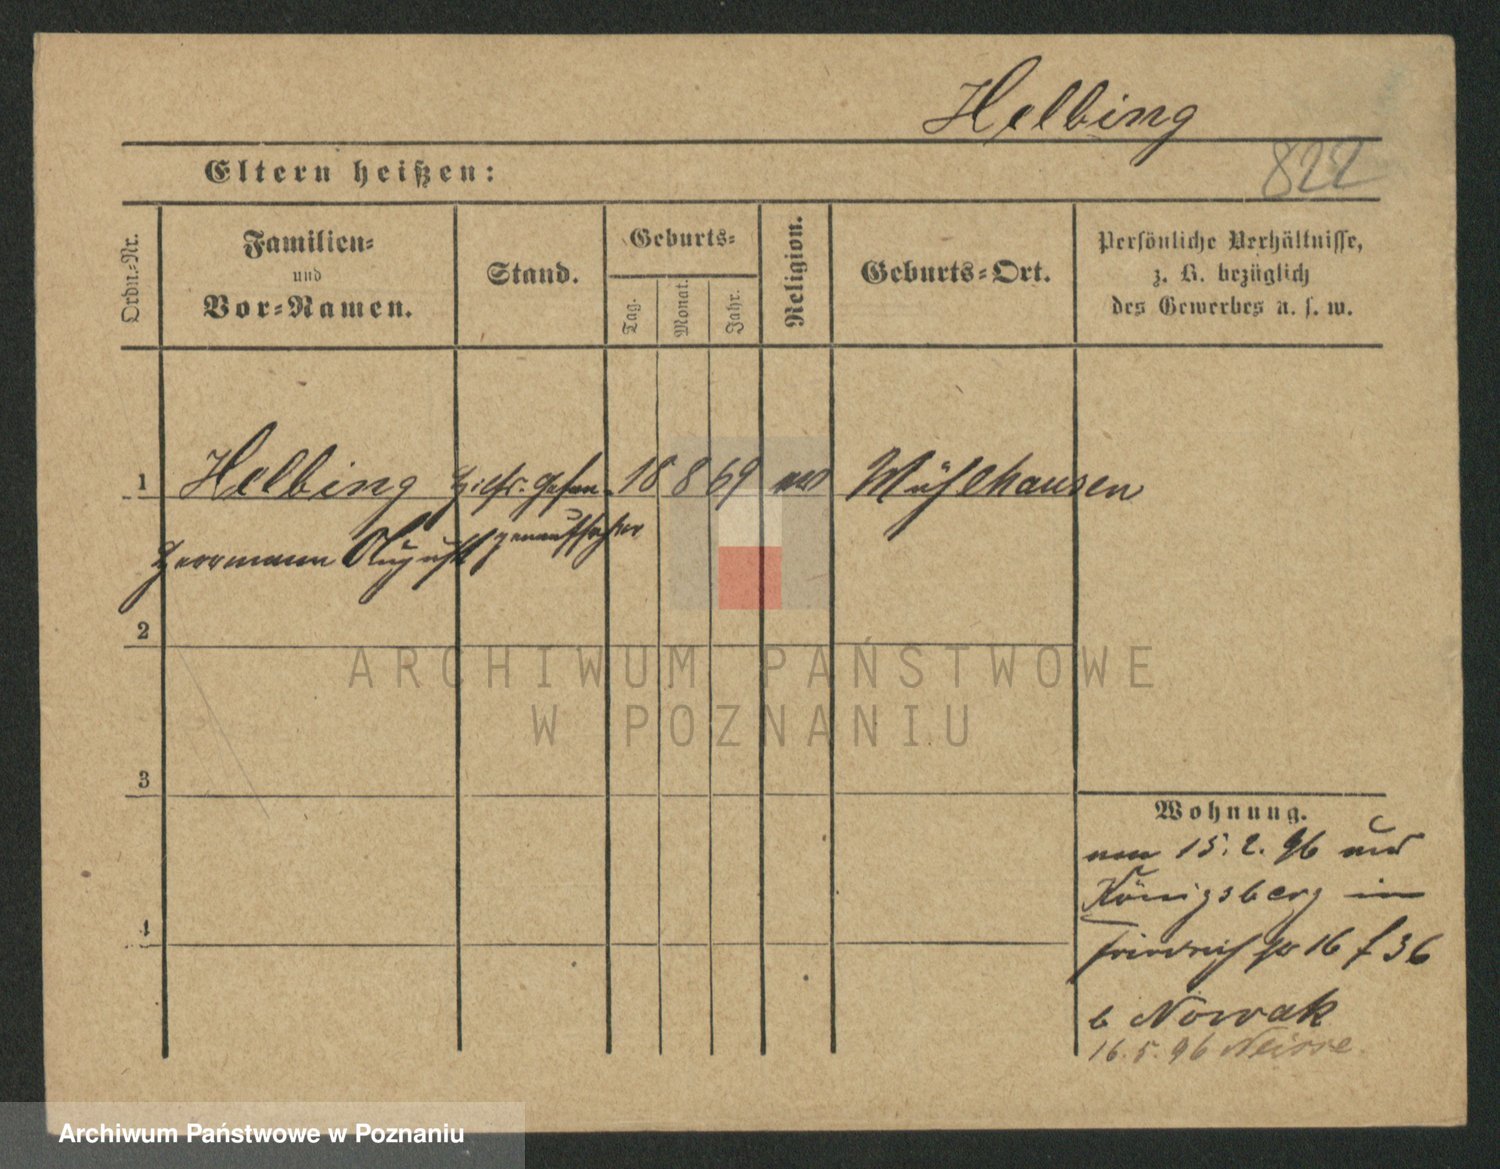 Helbing
822
Eltern heißen:
Ordn.-Nr.
Familien-
und
Vor-Namen.
Stand.
Geburts-
Tag.
Monat.
Jahr.
Religion.
Geburts-Ort.
Persönliche Verhältnisse,
z. B. bezüglich
des Gewerbes u. s. w.
1 Helbing Hilfs. Gefan- 18 8 69 Mühlhausen
Herrmann August genaufseher
2
3
4
Wohnung.
15.2.96
Königsberg in
Friedrich 16 36
b Nowak
16.5.96 Neisse
ARCHIWUM PAŃSTWOWE
W POZNANIU
Archiwum Państwowe w Poznaniu